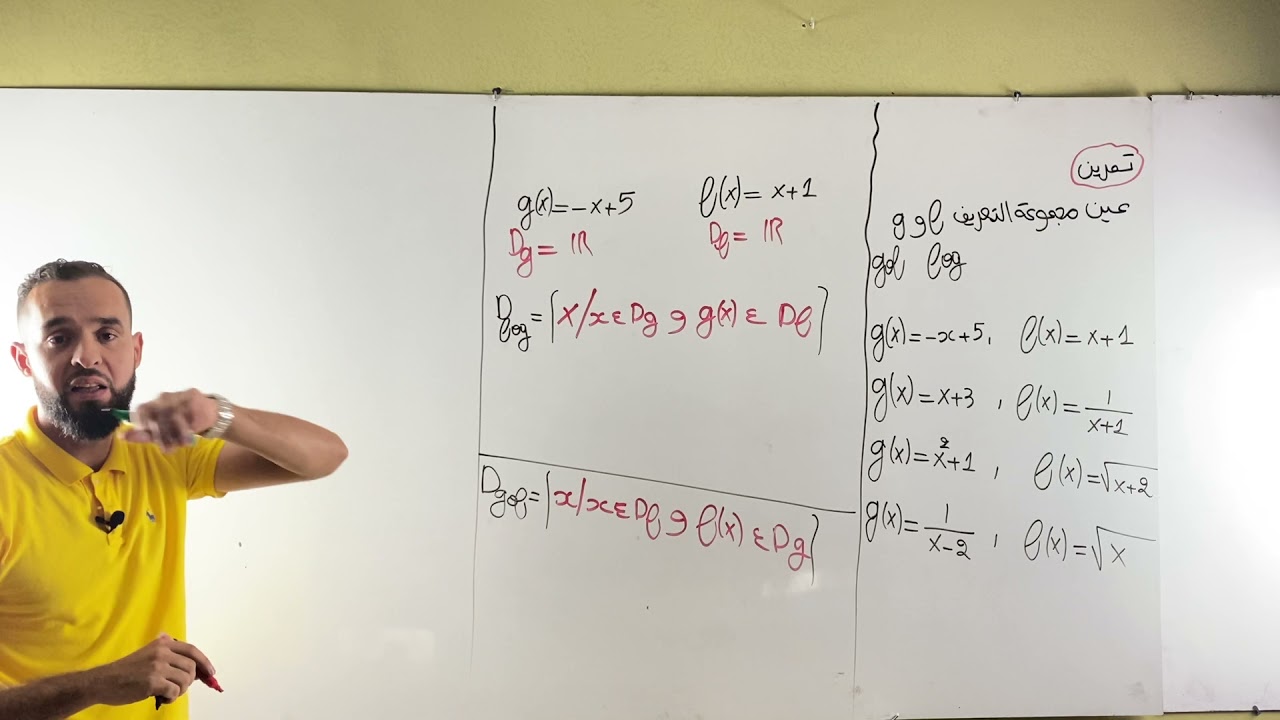 تمرين
عين مجموعة التعريف f و g
fog gof
g(x)=-x+5, f(x)=x+1
g(x)=x+3, f(x)=1/(x+1)
g(x)=x²+1, f(x)=√(x+2)
g(x)=1/(x-2), f(x)=√x
g(x)=-x+5 f(x)=x+1
Dg=ℝ Df=ℝ
Dfog={x/x∈Dg و g(x)∈Df}
Dgof={x/x∈Df و f(x)∈Dg}